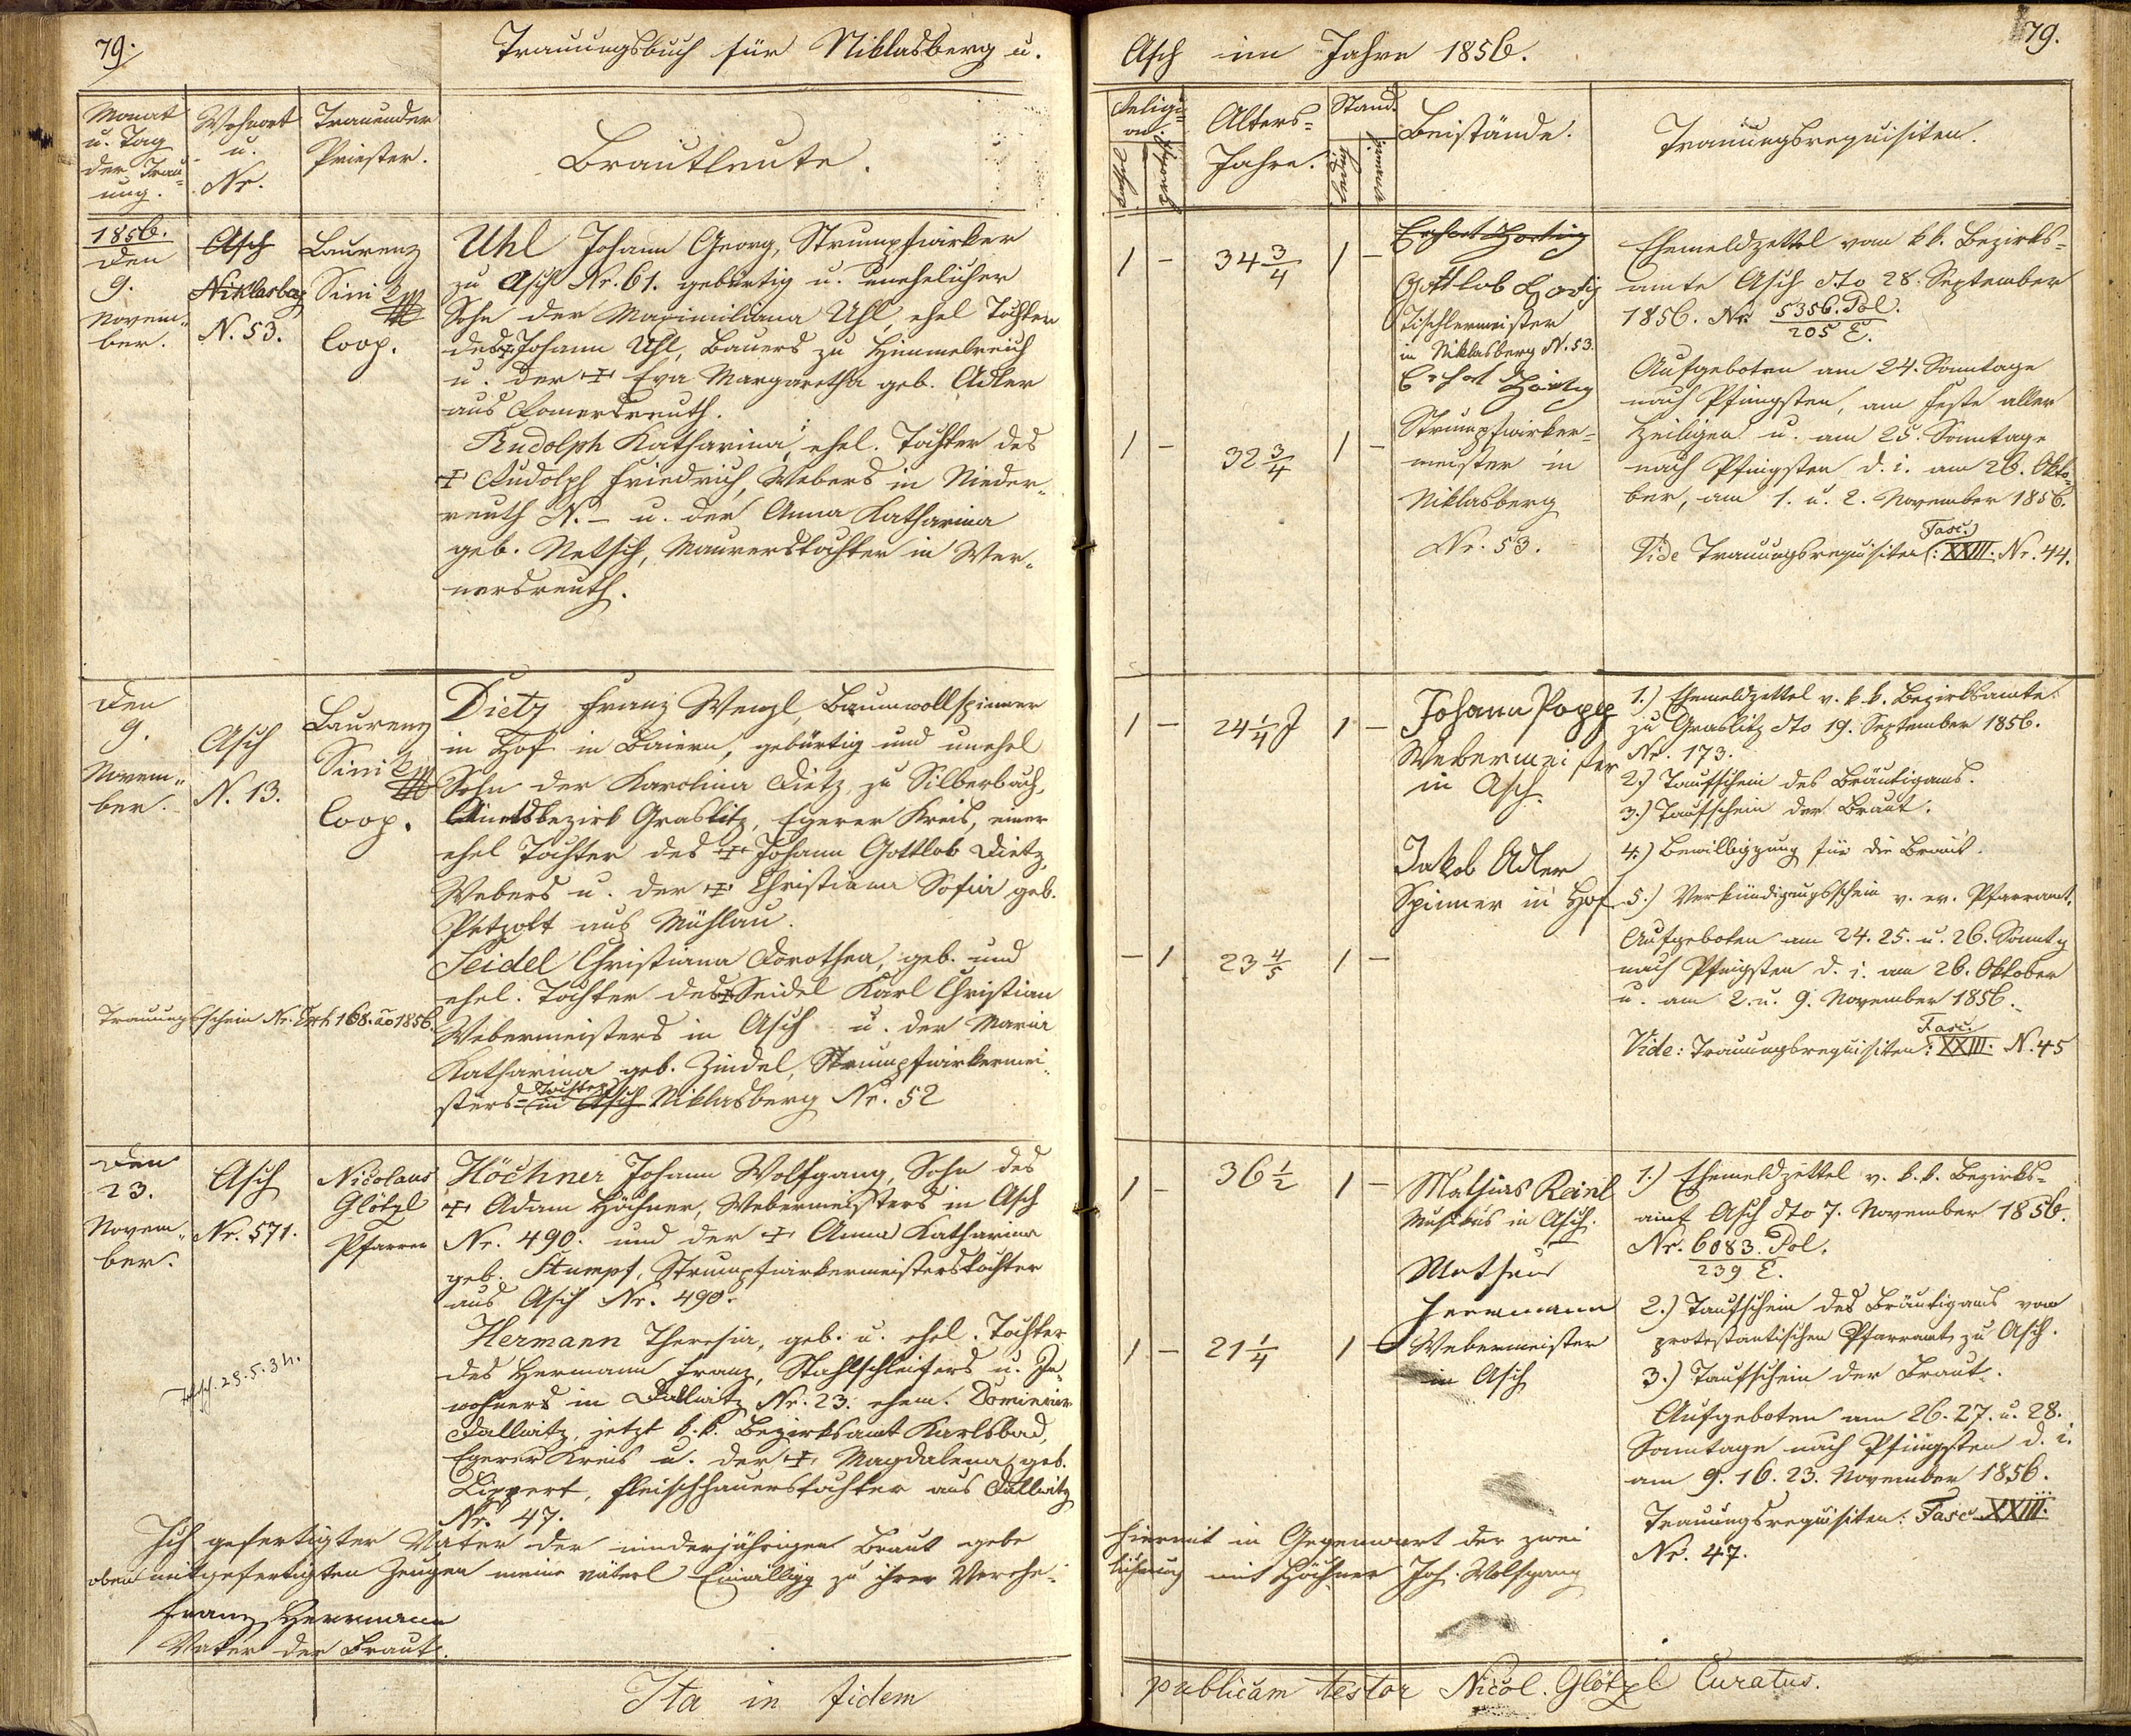 79.
Trauungsbuch für Niklasberg u.
Monat
u. Tag
der Trau=
ung.
Wohnort
u.
Nr.
Trauender
Priester.
Brautleute.
1856.
den
9.
Novem=
ber.
Asch
Niklasberg
N. 53.
Laurenz
Sinik
Coop.
Uhl Johann Georg, Strumpfwirker
zu Asch Nr. 61. gebürtig u. unehelicher
Sohn der Maximiliana Uhl, ehel Tochter
des + Johann Uhl, Bauers zu Himmelreich
u. der + Eva Margaretha geb. Adler
aus Romersreuth.
Rudolph Katharina, ehel. Tochter des
+ Rudolph Friedrich, Webers in Nieder=
reuth N. – u. der Anna Katharina
geb. Netsch, Maurerstochter in Wer=
nersreuth.
den
9.
Novem=
ber.
Asch
N. 13.
Laurenz
Sinik
Coop.
Dietz Franz Wenzl, Baumwollspinner
in Hof in Baiern, gebürtig und unehel
Sohn der Karolina Dietz zu Silberbach,
Amtsbezirk Graslitz, Egerer Kreis, einer
ehel Tochter des + Johann Gottlob Dietz,
Webers u. der + Christiana Sofia geb.
Petzolt aus Mühlau.
Seidel Christiana Dorothea, geb. und
ehel. Tochter des + Seidel Karl Christian
Trauungsschein Nr. Exh. 168. ao 1856.
Webermeisters in Asch u. der Maria
Katharina geb. Zindel, Strumpfwirkermei=
sters=Tochter in Asch Niklasberg Nr. 52
den
23.
Novem=
ber.
Asch
Nr. 571.
Nicolaus
Glötzl
Pfarrer
Höchner Johann Wolfgang, Sohn des
+ Adam Höchner, Webermeisters in Asch
Nr. 490. und der + Anna Katharina
geb. Stumpf, Strumpfwirkermeisterstochter
aus Asch Nr. 490.
Hermann Theresia, geb. u. ehel. Tochter
des Hermann Franz, Stahlschleifers u. In=
wohners in Dallwitz Nr. 23. ehem. Dominium
Dallwitz, jetzt k. k. Bezirksamt Karlsbad,
Egerer Kreis u. der + Magdalena, geb.
Lippert, Fleischhauerstochter aus Dallwitz
Nr. 47.
28.5.34.
Ich gefertigter Vater der minderjährigen Braut gebe
oben mitgefertigten Zeugen meine väterl Einwilligg zu ihrer Verehe=
Franz Herrmann
Vater der Braut.
Ita in fidem
Asch im Jahre 1856.
79.
Religi=
on.
Kathol.
Protest.
Alters=
Jahre.
Stand.
ledig
verwitwet
Beistände.
Trauungsrequisiten.
1 – 34 3/4 1 –
Erhart Hartig
Gottlob Hartig
Tischlermeister
in Niklasberg N. 53.
Erhart Hartig
Strumpfwirker=
meister in
Niklasberg
Nr. 53.
1 – 32 3/4 1 –
Ehemeldzettel vom k k. Bezirks=
amte Asch dto 28. September
1856. Nr. 5356. Pol.
205 E.
Aufgeboten am 24. Sonntage
nach Pfingsten, am Feste aller
Heiligen u. am 25. Sonntage
nach Pfingsten d. i. am 26. Okto=
ber, am 1. u. 2. November 1856.
Vide Trauungsrequisiten: Fasc. XXIII. Nr. 44.
1 – 24 1/4 J 1 –
Johann Popp
Webermeister
in Asch.
Jakob Adler
Spinner in Hof
– 1 23 4/5 1 –
1.) Ehemeldzettel v. k. k. Bezirksamte
zu Graslitz dto 19. September 1856.
Nr. 173.
2.) Taufschein des Bräutigams.
3.) Taufschein der Braut.
4.) Bewilligung für die Braut.
5.) Verkündigungsschein v. ev. Pfarramt.
Aufgeboten am 24. 25. u. 26. Sonntg
nach Pfingsten d. i. am 26. Oktober
u. am 2. u. 9. November 1856.
Vide: Trauungsrequisiten: Fasc. XXIII. N. 45
1 – 36 1/2 1 –
Mathias Reinl
Musikus in Asch.
Mathias
Herrmann
Webermeister
in Asch
1 – 21 1/4 1 –
1.) Ehemeldzettel v. k. k. Bezirks=
amt Asch dto 7. November 1856.
Nr. 6083. Pol.
239 E.
2.) Taufschein des Bräutigams vom
protestantischen Pfarramt zu Asch.
3.) Taufschein der Braut.
Aufgeboten am 26. 27. u. 28.
Sonntage nach Pfingsten d. i.
am 9. 16. 23. November 1856.
Trauungsrequisiten: Fasc XXIII.
Nr. 47.
hiermit in Gegenwart der zwei
lichung mit Höchner Joh. Wolfgang
publicam testor Nicol. Glötzl Curatus.